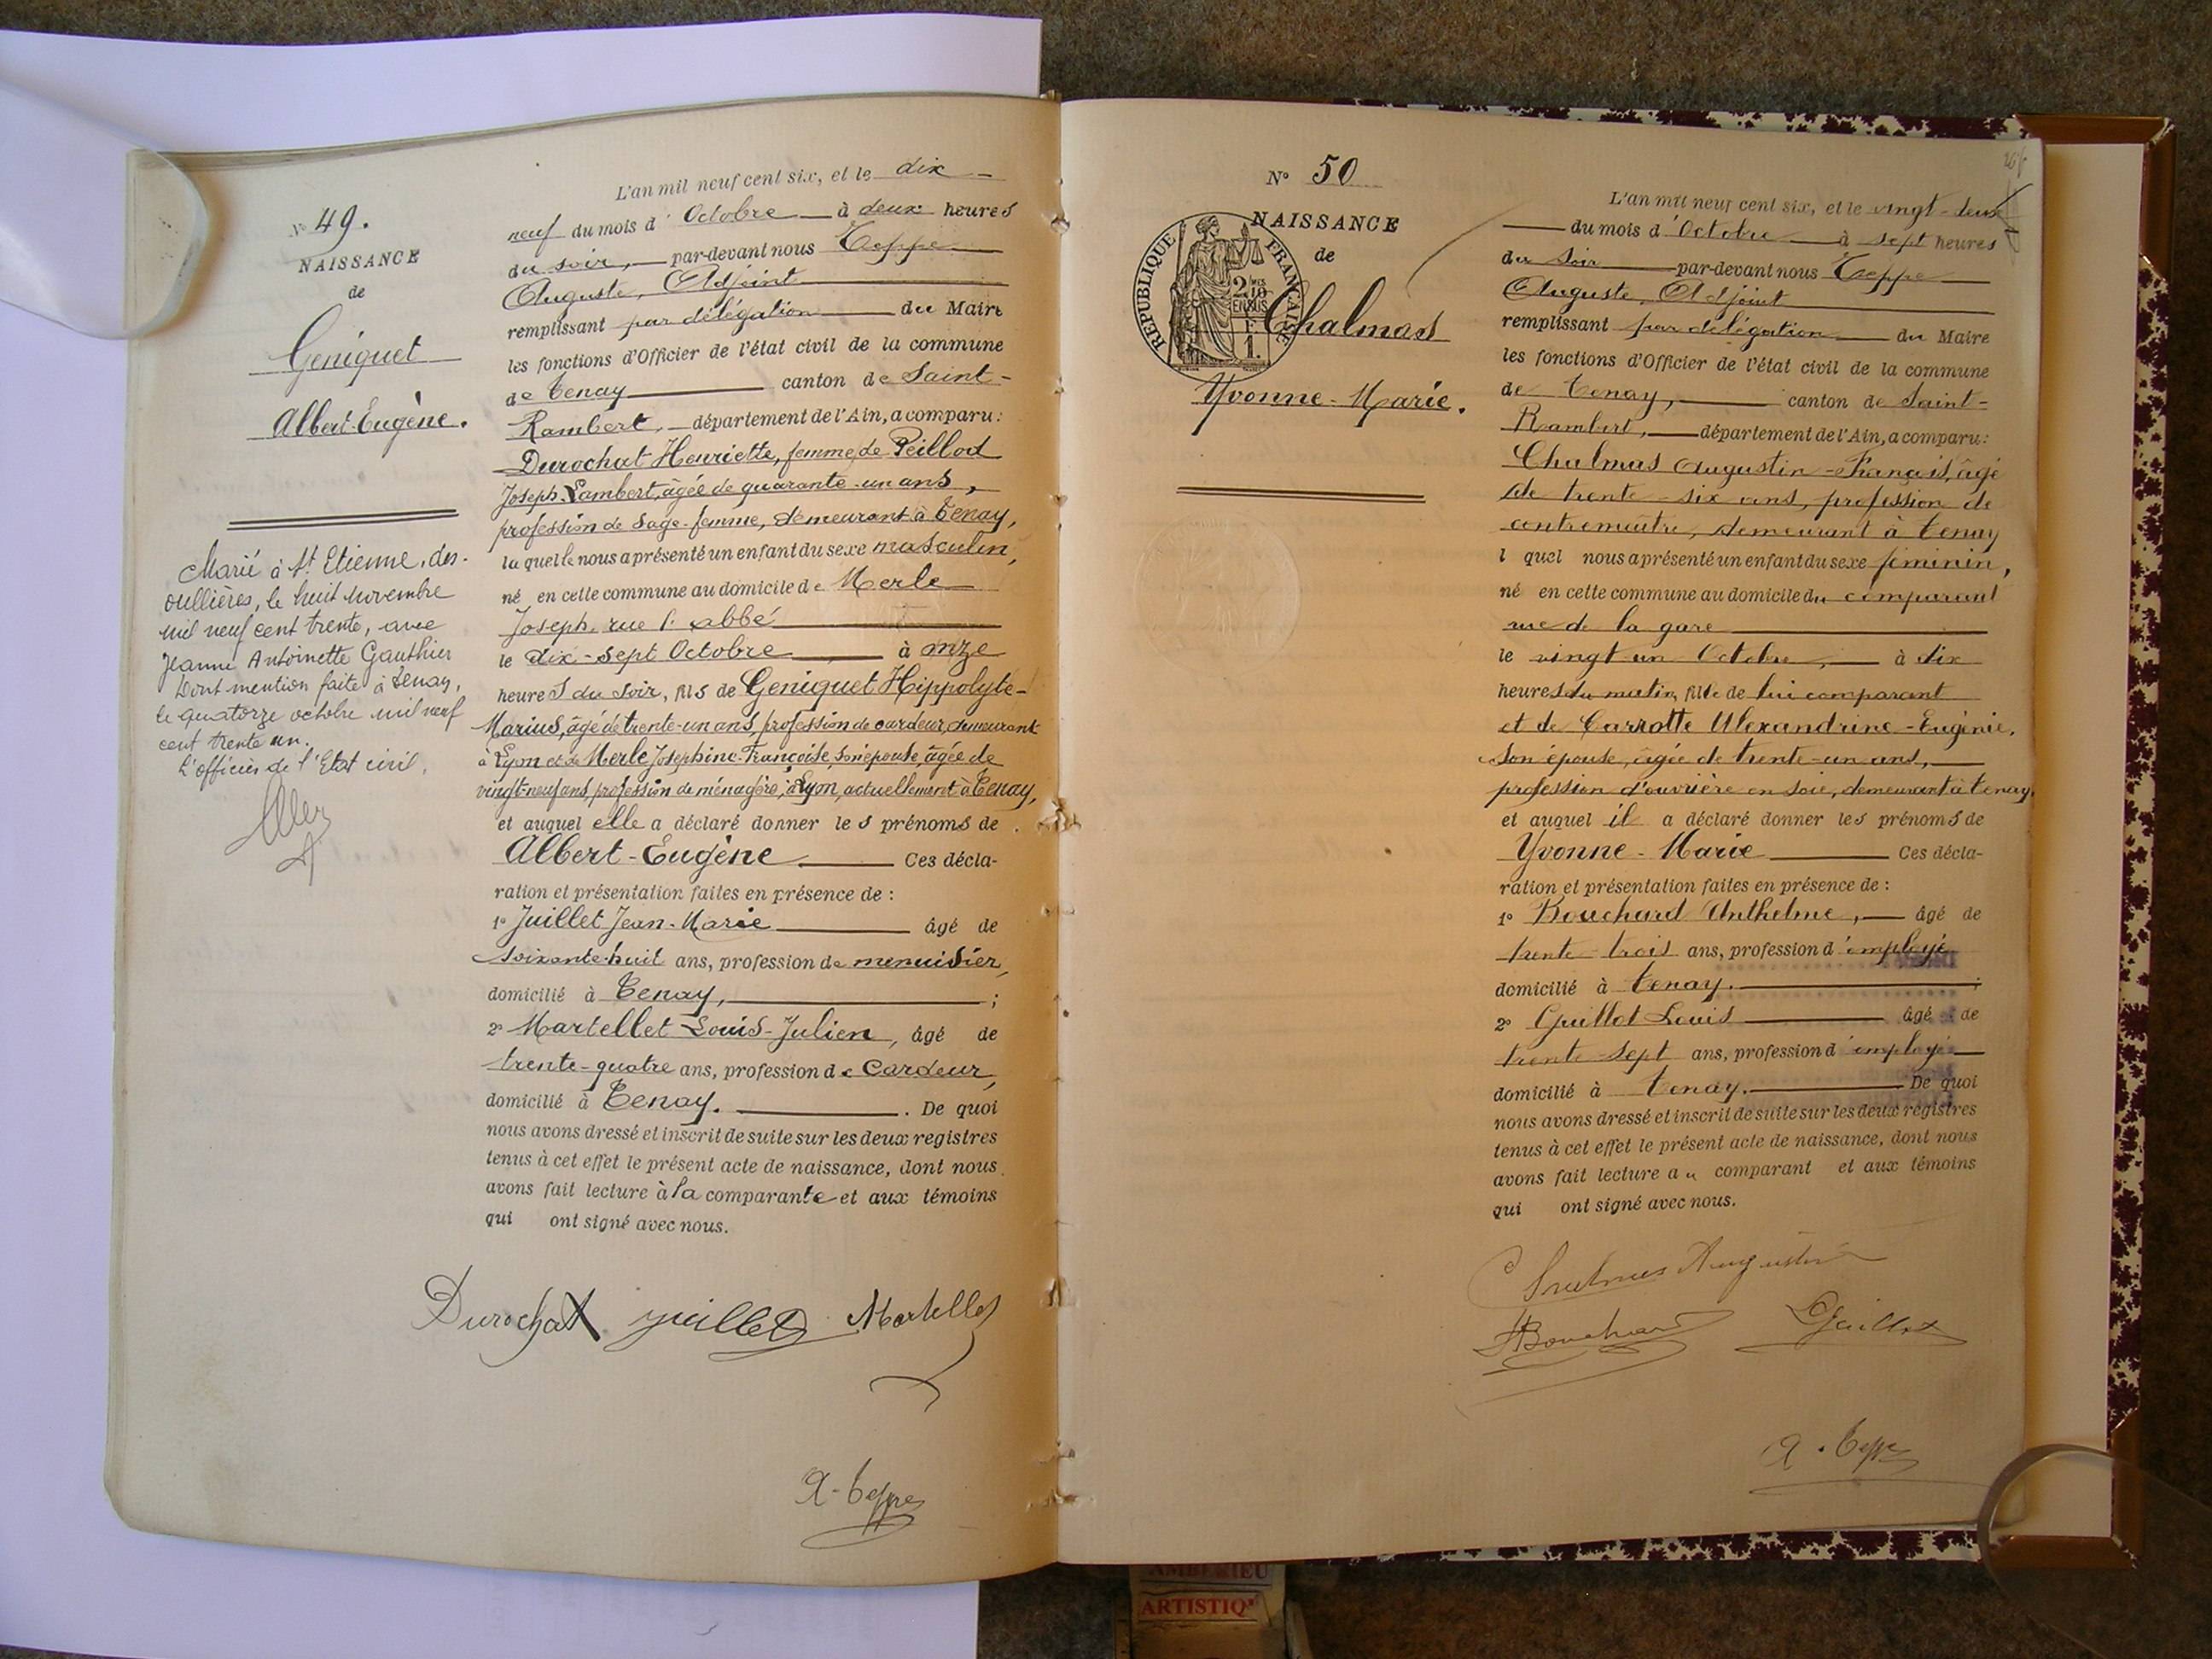 N° 49.
NAISSANCE
de
Geniquet
Albert-Eugène.
Marié à St Etienne, des-
oullières, le huit novembre
mil neuf cent trente, avec
Jeanne Antoinette Gauthier
Dont mention faite à Tenay,
le quatorze octobre mil neuf
cent trente un.
L'officier de l'Etat civil,
L'an mil neuf cent six, et le dix-
neuf du mois d'Octobre à deux heures
du soir, par-devant nous Teppe
Auguste, Adjoint
remplissant par délégation du Maire
les fonctions d'Officier de l'état civil de la commune
de Tenay canton de Saint-
Rambert, département de l'Ain, a comparu:
Durochat Henriette, femme de Peillod
Joseph-Lambert, âgée de quarante-un ans,
profession de sage-femme, demeurant à Tenay,
laquelle nous a présenté un enfant du sexe masculin,
né en cette commune au domicile de Merle
Joseph, rue l'abbé
le dix-sept Octobre à onze
heures du soir, fils de Geniquet Hippolyte-
Marius, âgé de trente-un ans, profession de cardeur, demeurant
à Lyon et de Merle Josephine-Françoise, son épouse, âgée de
vingt-neuf ans, profession de ménagère, à Lyon, actuellement à Tenay,
et auquel elle a déclaré donner les prénoms de
Albert-Eugène Ces décla-
ration et présentation faites en présence de :
1° Juillet Jean-Marie âgé de
soixante-huit ans, profession de menuisier,
domicilié à Tenay, ;
2° Martellet Louis-Julien, âgé de
trente-quatre ans, profession de Cardeur,
domicilié à Tenay. . De quoi
nous avons dressé et inscrit de suite sur les deux registres
tenus à cet effet le présent acte de naissance, dont nous
avons fait lecture à la comparante et aux témoins
qui ont signé avec nous.
Durochat Juillet Martellet
A. Teppe
N° 50
NAISSANCE
de
REPUBLIQUE FRANÇAISE
2/10 mes
EN SUS
1f.
1.
Chalmas
Yvonne-Marie.
L'an mil neuf cent six, et le vingt-deux
du mois d'Octobre à sept heures
du soir par-devant nous Teppe
Auguste, Adjoint
remplissant par délégation du Maire
les fonctions d'Officier de l'état civil de la commune
de Tenay, canton de Saint-
Rambert, département de l'Ain, a comparu:
Chalmas Augustin-François, âgé
de trente-six ans, profession de
contremaître, demeurant à Tenay
lquel nous a présenté un enfant du sexe féminin,
né en cette commune au domicile du comparant
rue de la gare
le vingt-un Octobre, à dix
heures du matin, fille de lui comparant
et de Carrotte Alexandrine-Eugénie,
son épouse, âgée de trente-un ans,
profession d'ouvrière en soie, demeurant à Tenay,
et auquel il a déclaré donner les prénoms de
Yvonne-Marie Ces décla-
ration et présentation faites en présence de :
1° Bouchard Anthelme, âgé de
trente-trois ans, profession d'employé
domicilié à Tenay. ;
2° Guillot Louis âgé de
trente-sept ans, profession d'employé
domicilié à Tenay. De quoi
nous avons dressé et inscrit de suite sur les deux registres
tenus à cet effet le présent acte de naissance, dont nous
avons fait lecture au comparant et aux témoins
qui ont signé avec nous.
Chalmas Augustin
ABouchard LGuillot
A. Teppe
AMBERIEU
ARTISTIQ